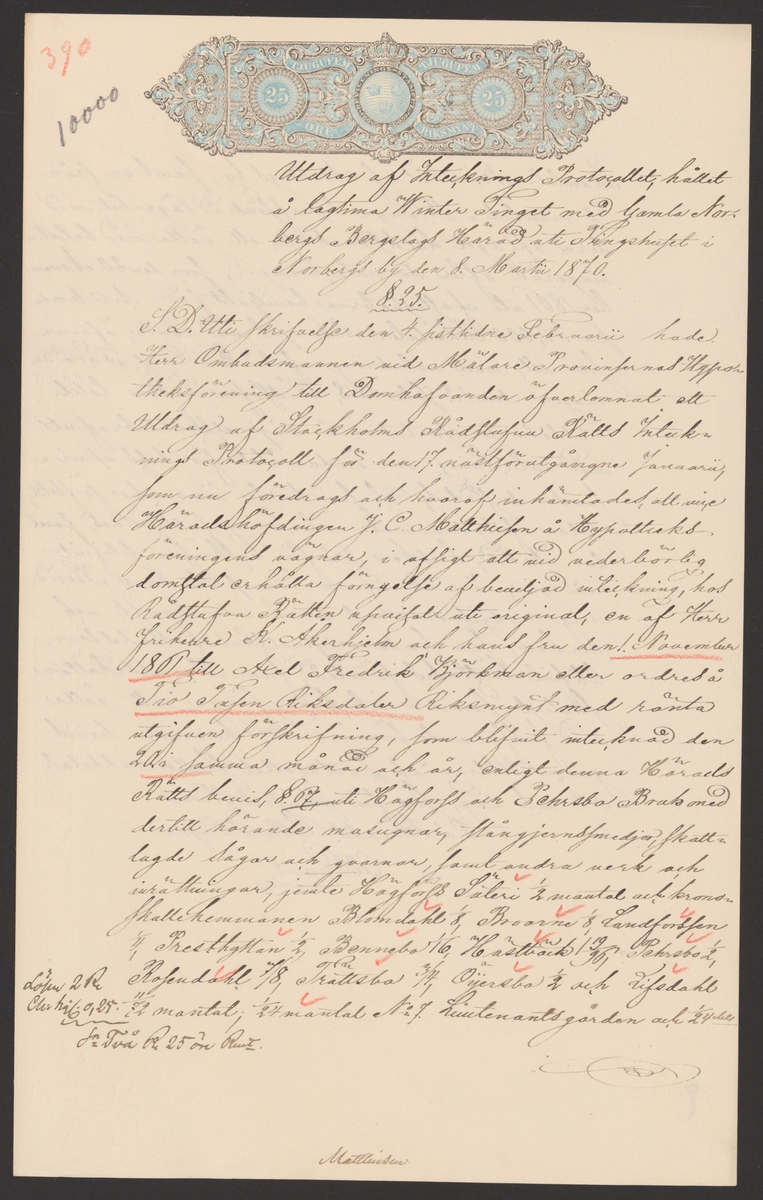 390
10000
TJUGUFEM TJUGUFEM
25 25
ÖRE RIKSMYNT
Utdrag af Intecknings Protocollet, hållet
å lagtima Winter Tinget med Gamla Nor-
bergs Bergslags Härad uti Tingshuset i
Norbergs by den 8. Martii 1870.
§. 25.
S. D. Uti skrifvelse den 4. sistlidne Februarii hade
Herr Ombudsmannen vid Mälare Provinsernas Hypo-
theksförening till Domhafvanden öfverlemnat ett
Utdrag af Stockholms Rådstufvu Rätts Inteck-
nings Protocoll för den 17. nästförutgångne Januarii,
som nu föredrogs och hvaraf inhämtades, att vice
Häradshöfdingen J. C. Matthiesen å Hypotheks
föreningens vägnar, i afsigt att vid vederbörlig
domstol erhålla förnyelse af beviljad inteckning, hos
Rådstufvu Rätten uppvisat uti original, en af Herr
friherre K. Åkerhjelm och hans fru den 1. November
1861 till Axel Fredrik Björkman eller ordres å
Tio Tusen Riksdaler Riksmynt med ränta
utgifven förskrifning, som blifvit intecknad den
20 i samma månad och år, enligt denna Härads
Rätts bevis, §. 67. uti Högforss och Pehrsbo Bruk med
dertill hörande masugnar, stångjernssmedjor, skatt-
lagde sågar och qvarnar, samt andra verk och
inrättningar, jemte Högforss Säteri 1/2 mantal och krono-
skattehemmanen Blomdahl 1/8, Broarne 1/8, Landforssen
1/4, Presthyttan 1/2, Bennebo 1/6, Hästbäck Pehrsbo 1/2,
Rosendahl 7/8, Trättsbo 3/4, Öijersbo 1/2 och Lifsdahl
11/72 mantal; 1/24 mantal No 7. Lieutenantsgården och 1/24 dels
Lösen 2 R
Ch: 0,25.
Sn Två R 25 öre Rmt.
Matthiesen